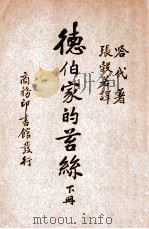 哈代著
張穀若譯
德伯家的苔絲
下冊
商務印書館發行